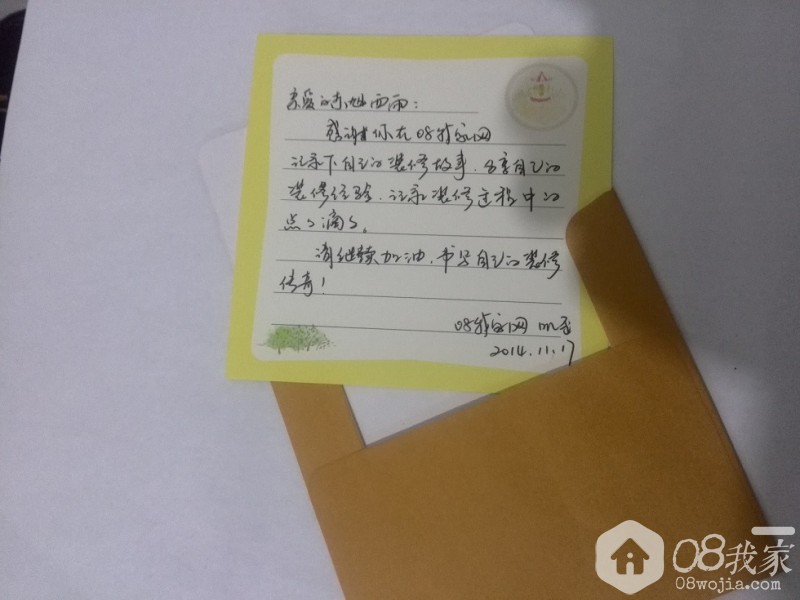 亲爱的东灿西雨：
感谢你在08我家网
记录下自己的装修故事，分享自己的
装修经验，记录装修过程中的
点々滴々。
请继续加油，书写自己的装修
传奇！
08我家网
2014.11.17
08我家
08wojia.com